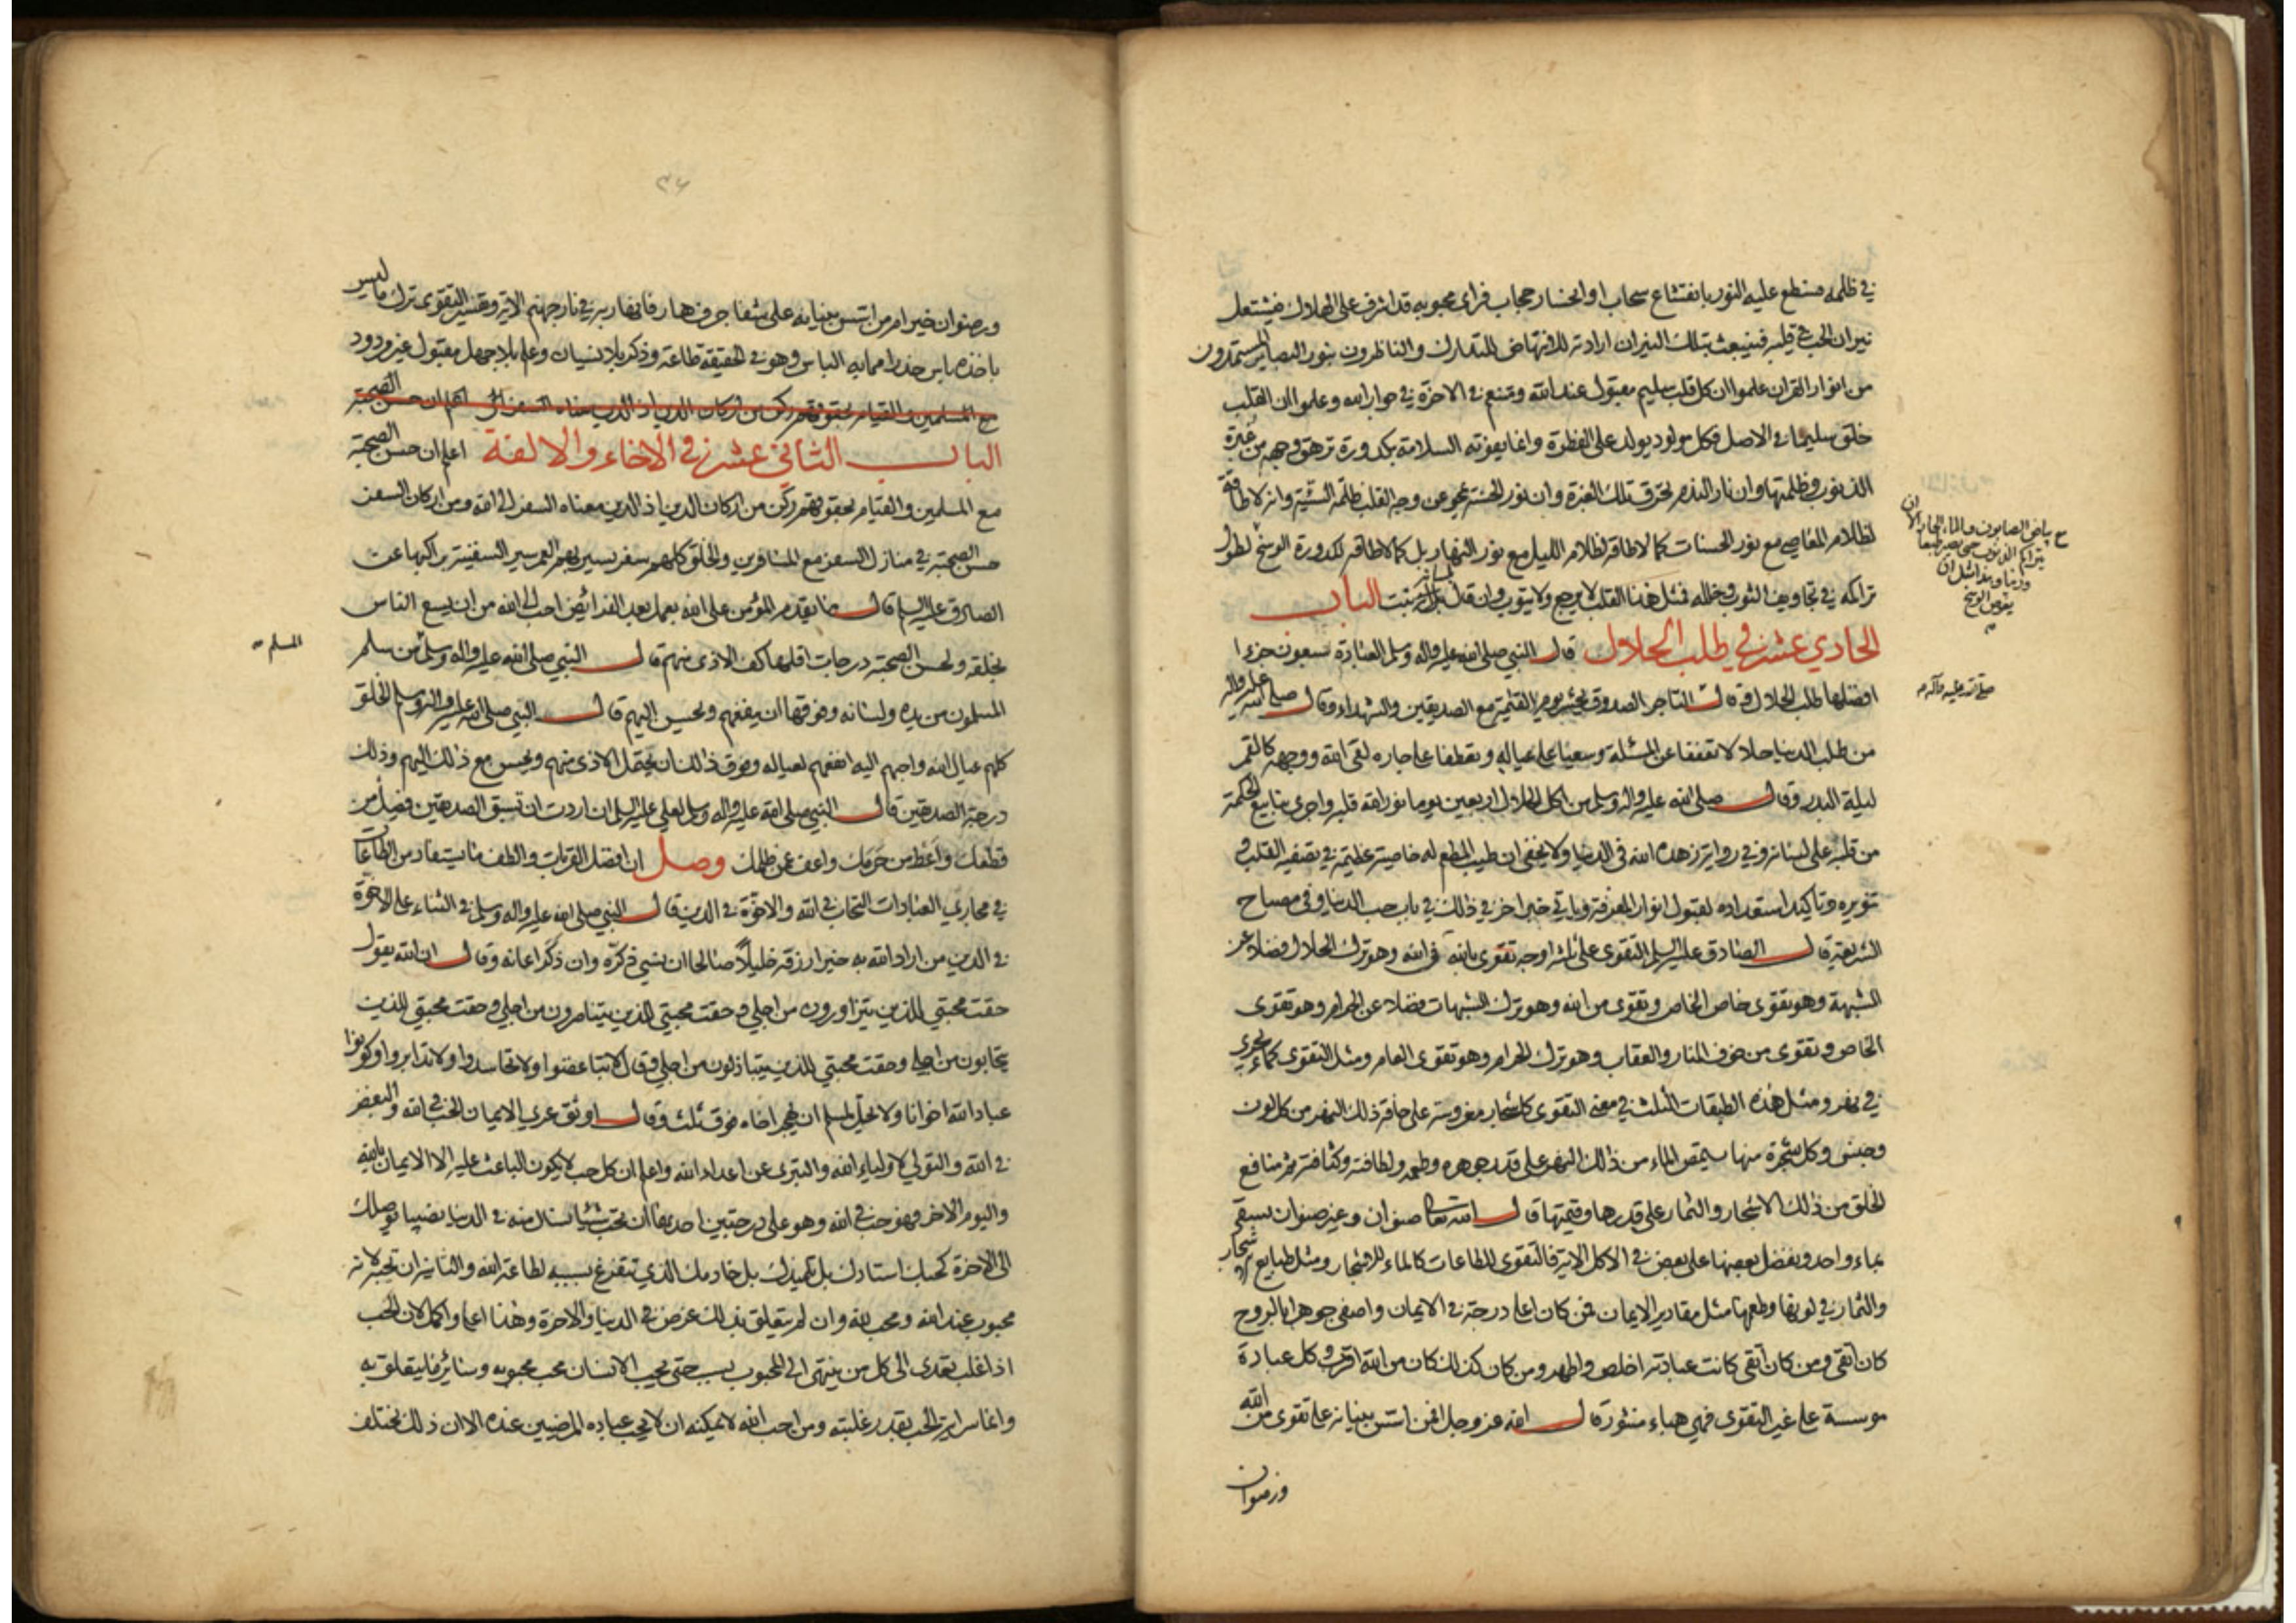 في ظلمه فسطع عليه النور بانقشاع سحاب او انحسار حجاب فرأى محبوبه قد اشرف على الهلاك فيشتعل
نيران الحب في قلبه فينبعث بتلك النيران ارادته للانتهاض للتدارك والناظرون بنور البصائر المستمدون
من انوار القران علموا ان كل قلب سليم مقبول عند الله ومتنعم في الاخرة في جوار الله وعلموا ان القلب
خلق سليما في الاصل فكل مولود يولد على الفطرة وانما يفوته السلامة بكدورة ترهق وجهه من غبرة
الذنوب وظلمتها وان نار الندم تحرق تلك الغبرة وان نور الحسنة يمحو عن وجه القلب ظلمة السيئة وانه لا طاقة
لظلام المعاصي مع نور الحسنات كما لا طاقة لظلام الليل مع نور النهار بل كما لا طاقة لكدورة الوسخ لطول
تراكمه في تجاويف الثوب وخلله فمثل هذا القلب لا يرجع ولا يتوب وان قال بلسانه تبت الباب
الحادي عشر في طلب الحلال قال النبي صلى الله عليه واله وسلم العبادة سبعون جزءا
افضلها طلب الحلال وقال التاجر الصدوق يحشر يوم القيمة مع الصديقين والشهداء وقال صلى الله عليه واله
من طلب الدنيا حلالا تعففا عن المسئلة وسعيا على عياله وتعطفا على جاره لقى الله ووجهه كالقمر
ليلة البدر وقال صلى الله عليه واله وسلم من اكل الحلال اربعين يوما نور الله قلبه واجرى ينابيع الحكمة
من قلبه على لسانه وفي رواية زهده الله في الدنيا ولا يخفى ان طيب المطعم له خاصية عظيمة في تصفية القلب و
تنويره وتاكيد استعداده لقبول انوار المعرفة وياتي خبر اخر في ذلك في باب حب الدنيا وفي مصباح
الشريعة قال الصادق عليه السلم التقوى على ثلثة اوجه تقوى بالله في الله وهو ترك الحلال فضلا عن
الشبهة وهو تقوى خاص الخاص وتقوى من الله وهو ترك الشبهات فضلا عن الحرام وهو تقوى
الخاص وتقوى من خوف النار والعقاب وهو ترك الحرام وهو تقوى العام ومثل التقوى كماء يجري
في نهر ومثل هذه الطبقات الثلث في معنى التقوى كاشجار مغروسة على حافة ذلك النهر من كل لون
وجنس وكل شجرة منها يستمص الماء من ذلك النهر على قدر جوهره وطعمه ولطافته وكثافته ثم منافع
الخلق من ذلك الاشجار والثمار على قدرها وقيمتها قال الله تعالى صنوان وغير صنوان يسقى
بماء واحد ونفضل بعضها على بعض في الاكل الاية فالتقوى للطاعات كالماء للاشجار ومثل طبايع الاشجار
والثمار في لونها وطعمها مثل مقادير الايمان فمن كان اعلى درجة في الايمان واصفى جوهرا بالروح
كان اتقى ومن كان اتقى كانت عبادته اخلص واطهر ومن كان كذلك كان من الله اقرب وكل عبادة
موسسة على غير التقوى فهي هباء منثور قال الله عز وجل افمن اسس بنيانه على تقوى من الله
ورضوان
بياض الصابون والماء الحار الا ان
يتراكم الذنوب حتى يصير طبعا
ورينا
يغوص الوسخ
صلى الله عليه وآله
ورضوان خير امن من اسس بنيانه على شفا جرف هار فانهار به في نار جهنم الاية وتفسير التقوى ترك ما ليس
باخذه باس حذرا مما به الباس وهو في الحقيقة طاعة وذكر بلا نسيان وعلم بلا جهل مقبول غير مردود
مع المسلمين والقيام بحقوقهم ركن من اركان الدين اذ الدين معناه السفر الى اعلم ان حسن الصحبة
الباب الثاني عشر في الاخاء والالفة اعلم ان حسن الصحبة
مع المسلمين والقيام بحقوقهم ركن من اركان الدين اذ الدين معناه السفر الى الله ومن اركان السفر
حسن الصحبة في منازل السفر مع المسافرين والخلق كلهم سفر يسير بهم العمر سير السفينة براكبها عن
الصادق عليه السلم قال ما يقدم المؤمن على الله بعمل بعد الفرائض احب الى الله من ان يسع الناس
بخلقه ولحسن الصحبة درجات اقلها كف الاذى منهم قال النبي صلى الله عليه واله وسلم من سلم
المسلمون من يده ولسانه وفوقها ان ينفعهم ويحسن اليهم قال النبي صلى الله عليه واله وسلم الخلق
كلهم عيال الله واحبهم اليه انفعهم لعياله وفوق ذلك ان يحتمل الاذى منهم ويحسن مع ذلك اليهم وذلك
درجة الصديقين قال النبي صلى الله عليه واله وسلم لعلي عليه السلم ان اردت ان تسبق الصديقين فصل من
قطعك واعط من حرمك واعف عمن ظلمك وصل ان افضل القربات والطف ما يستفاد من الطاعات
في مجاري العبادات التحاب في الله والاخوة في الدين قال النبي صلى الله عليه واله وسلم في الثناء على الاخوة
في الدين من اراد الله به خيرا رزقه خليلا صالحا ان نسي ذكره وان ذكر اعانه وقال ان الله يقول
حقت محبتي للذين يتزاورون من اجلي وحقت محبتي للذين يتناصرون من اجلي وحقت محبتي للذين
يتحابون من اجلي وحقت محبتي للذين يتباذلون من اجلي وقال لا تباغضوا ولا تحاسدوا ولا تدابروا وكونوا
عباد الله اخوانا ولا يحل لمسلم ان يهجر اخاه فوق ثلث وقال اوثق عرى الايمان الحب في الله والبغض
في الله والتولي لاولياء الله والتبري عن اعداء الله واعلم ان كل حب لا يكون الباعث عليه الا الايمان بالله
واليوم الاخر فهو حب في الله وهو على درجتين احديهما ان تحب شيئا لتنال منه في الدنيا نصيبا يوصلك
الى الاخرة كحبك استادك بل تلميذك بل خادمك الذي تتفرغ بسببه لطاعة الله والثانية ان تحبه لانه
محبوب عند الله ومحب لله وان لم يتعلق بذلك غرض في الدنيا والاخرة وهذا اعلى واكمل لان الحب
اذا غلب تعدى الى كل من ينتمى الى المحبوب بسبب حتى يحب الانسان محب محبوبه وسائر ما يتعلق به
وانما سراية الحب بقدر غلبته ومن احب الله لا يمكنه ان لا يحب عباده المرضيين عنده الا ان ذلك يختلف
المسلم